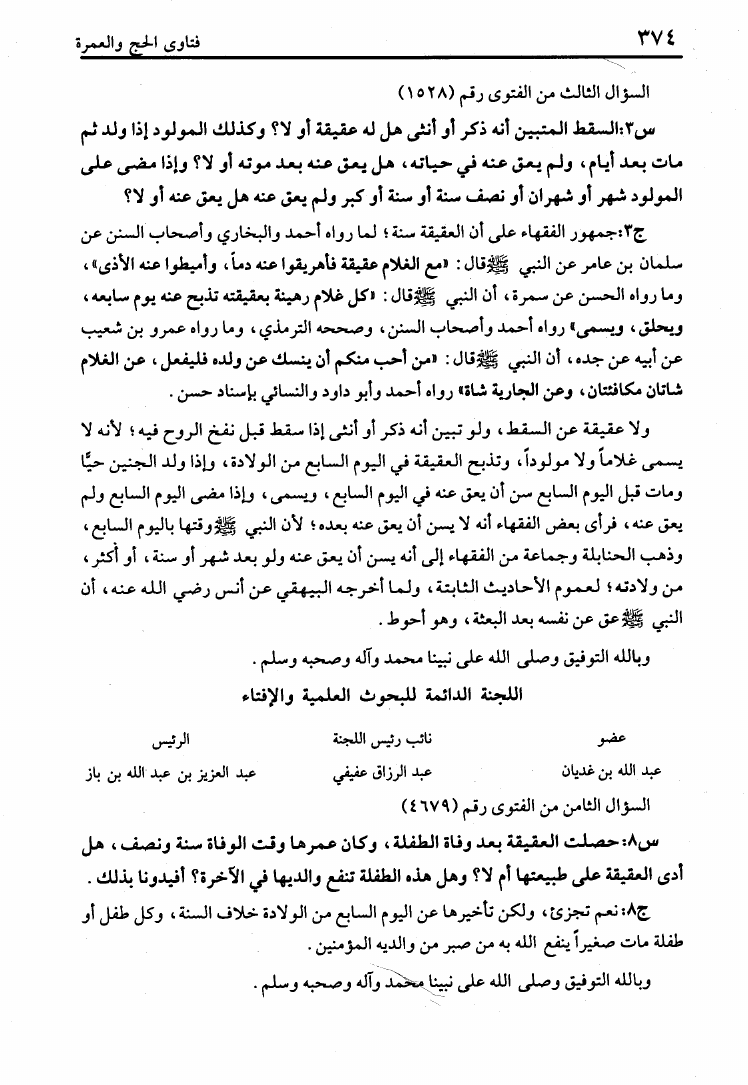 ٣٧٤
فتاوى الحج والعمرة
السؤال الثالث من الفتوى رقم (١٥٢٨)
س٣:السقط المتبين أنه ذكر أو أنثى هل له عقيقة أو لا؟ وكذلك المولود إذا ولد ثم
مات بعد أيام، ولم يعق عنه في حياته، هل يعق عنه بعد موته أو لا؟ وإذا مضى على
المولود شهر أو شهران أو نصف سنة أو سنة أو كبر ولم يعق عنه هل يعق عنه أو لا؟
ج٣:جمهور الفقهاء على أن العقيقة سنة؛ لما رواه أحمد والبخاري وأصحاب السنن عن
سلمان بن عامر عن النبي ﷺ قال: «مع الغلام عقيقة فأهريقوا عنه دماً، وأميطوا عنه الأذى»،
وما رواه الحسن عن سمرة، أن النبي ﷺ قال: «كل غلام رهينة بعقيقته تذبح عنه يوم سابعه،
ويحلق، ويسمى» رواه أحمد وأصحاب السنن، وصححه الترمذي، وما رواه عمرو بن شعيب
عن أبيه عن جده، أن النبي ﷺ قال: «من أحب منكم أن ينسك عن ولده فليفعل، عن الغلام
شاتان مكافئتان، وعن الجارية شاة» رواه أحمد وأبو داود والنسائي بإسناد حسن.
ولا عقيقة عن السقط، ولو تبين أنه ذكر أو أنثى إذا سقط قبل نفخ الروح فيه؛ لأنه لا
يسمى غلاماً ولا مولوداً، وتذبح العقيقة في اليوم السابع من الولادة، وإذا ولد الجنين حيًّا
ومات قبل اليوم السابع سن أن يعق عنه في اليوم السابع، ويسمى، وإذا مضى اليوم السابع ولم
يعق عنه، فرأى بعض الفقهاء أنه لا يسن أن يعق عنه بعده؛ لأن النبي ﷺ وقتها باليوم السابع،
وذهب الحنابلة وجماعة من الفقهاء إلى أنه يسن أن يعق عنه ولو بعد شهر أو سنة، أو أكثر،
من ولادته؛ لعموم الأحاديث الثابتة، ولما أخرجه البيهقي عن أنس رضي الله عنه، أن
النبي ﷺ عق عن نفسه بعد البعثة، وهو أحوط.
وبالله التوفيق وصلى الله على نبينا محمد وآله وصحبه وسلم.
اللجنة الدائمة للبحوث العلمية والإفتاء
عضو نائب رئيس اللجنة الرئيس
عبد الله بن غديان عبد الرزاق عفيفي عبد العزيز بن عبد الله بن باز
السؤال الثامن من الفتوى رقم (٤٦٧٩)
س٨:حصلت العقيقة بعد وفاة الطفلة، وكان عمرها وقت الوفاة سنة ونصف، هل
أدى العقيقة على طبيعتها أم لا؟ وهل هذه الطفلة تنفع والديها في الآخرة؟ أفيدونا بذلك.
ج٨:نعم تجزئ، ولكن تأخيرها عن اليوم السابع من الولادة خلاف السنة، وكل طفل أو
طفلة مات صغيراً ينفع الله به من صبر من والديه المؤمنين.
وبالله التوفيق وصلى الله على نبينا محمد وآله وصحبه وسلم.